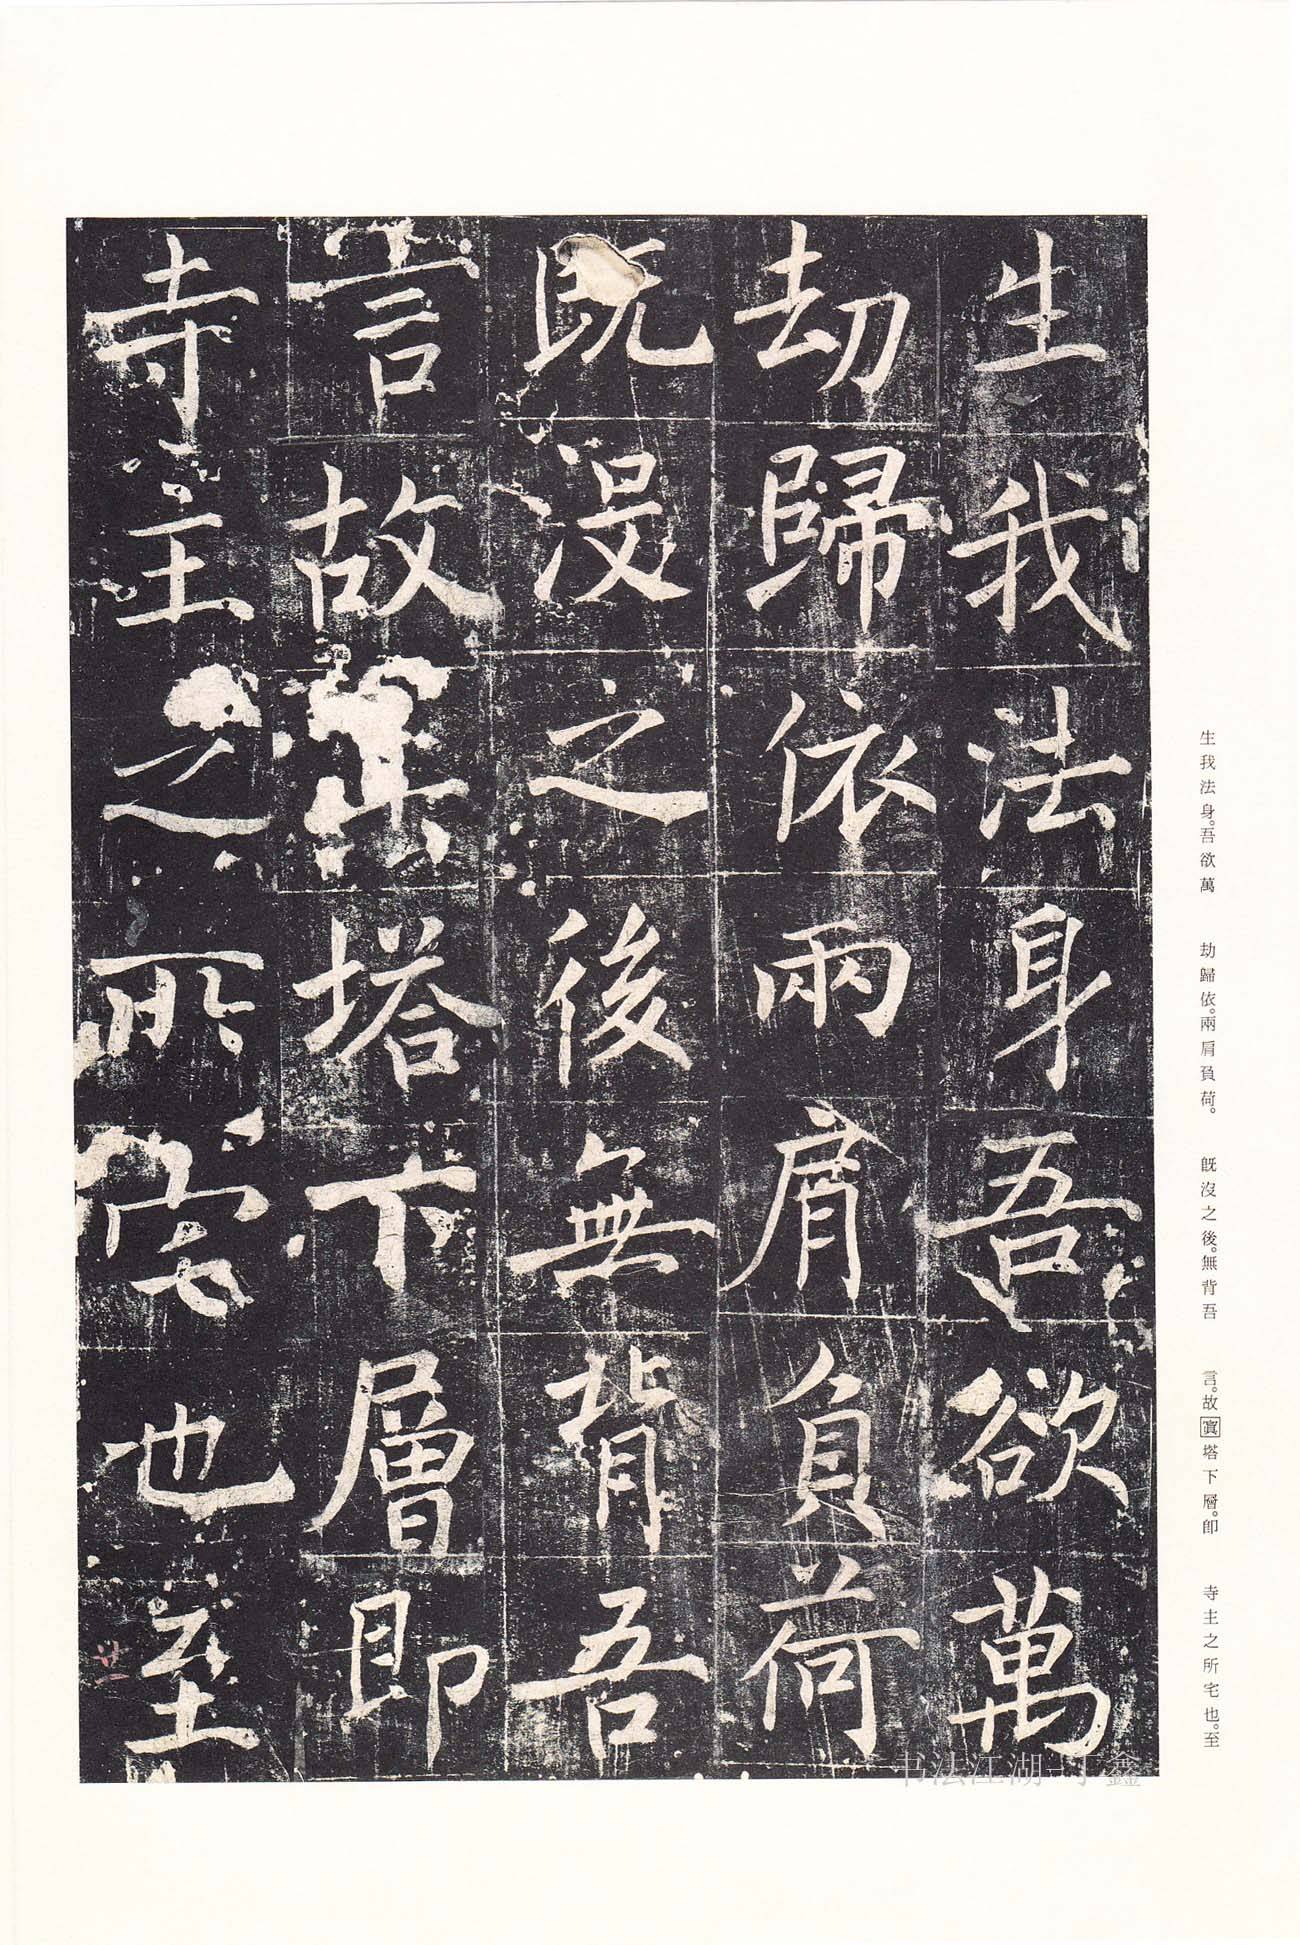 生我法身吾欲萬
劫歸依兩肩負荷
既沒之後無背吾
言故寘塔下層即
寺主之所宅也至
生我法身。吾欲萬
劫歸依。兩肩負荷。
既沒之後。無背吾
言。故寘塔下層。即
寺主之所宅也。至
书法江湖-丁鑫